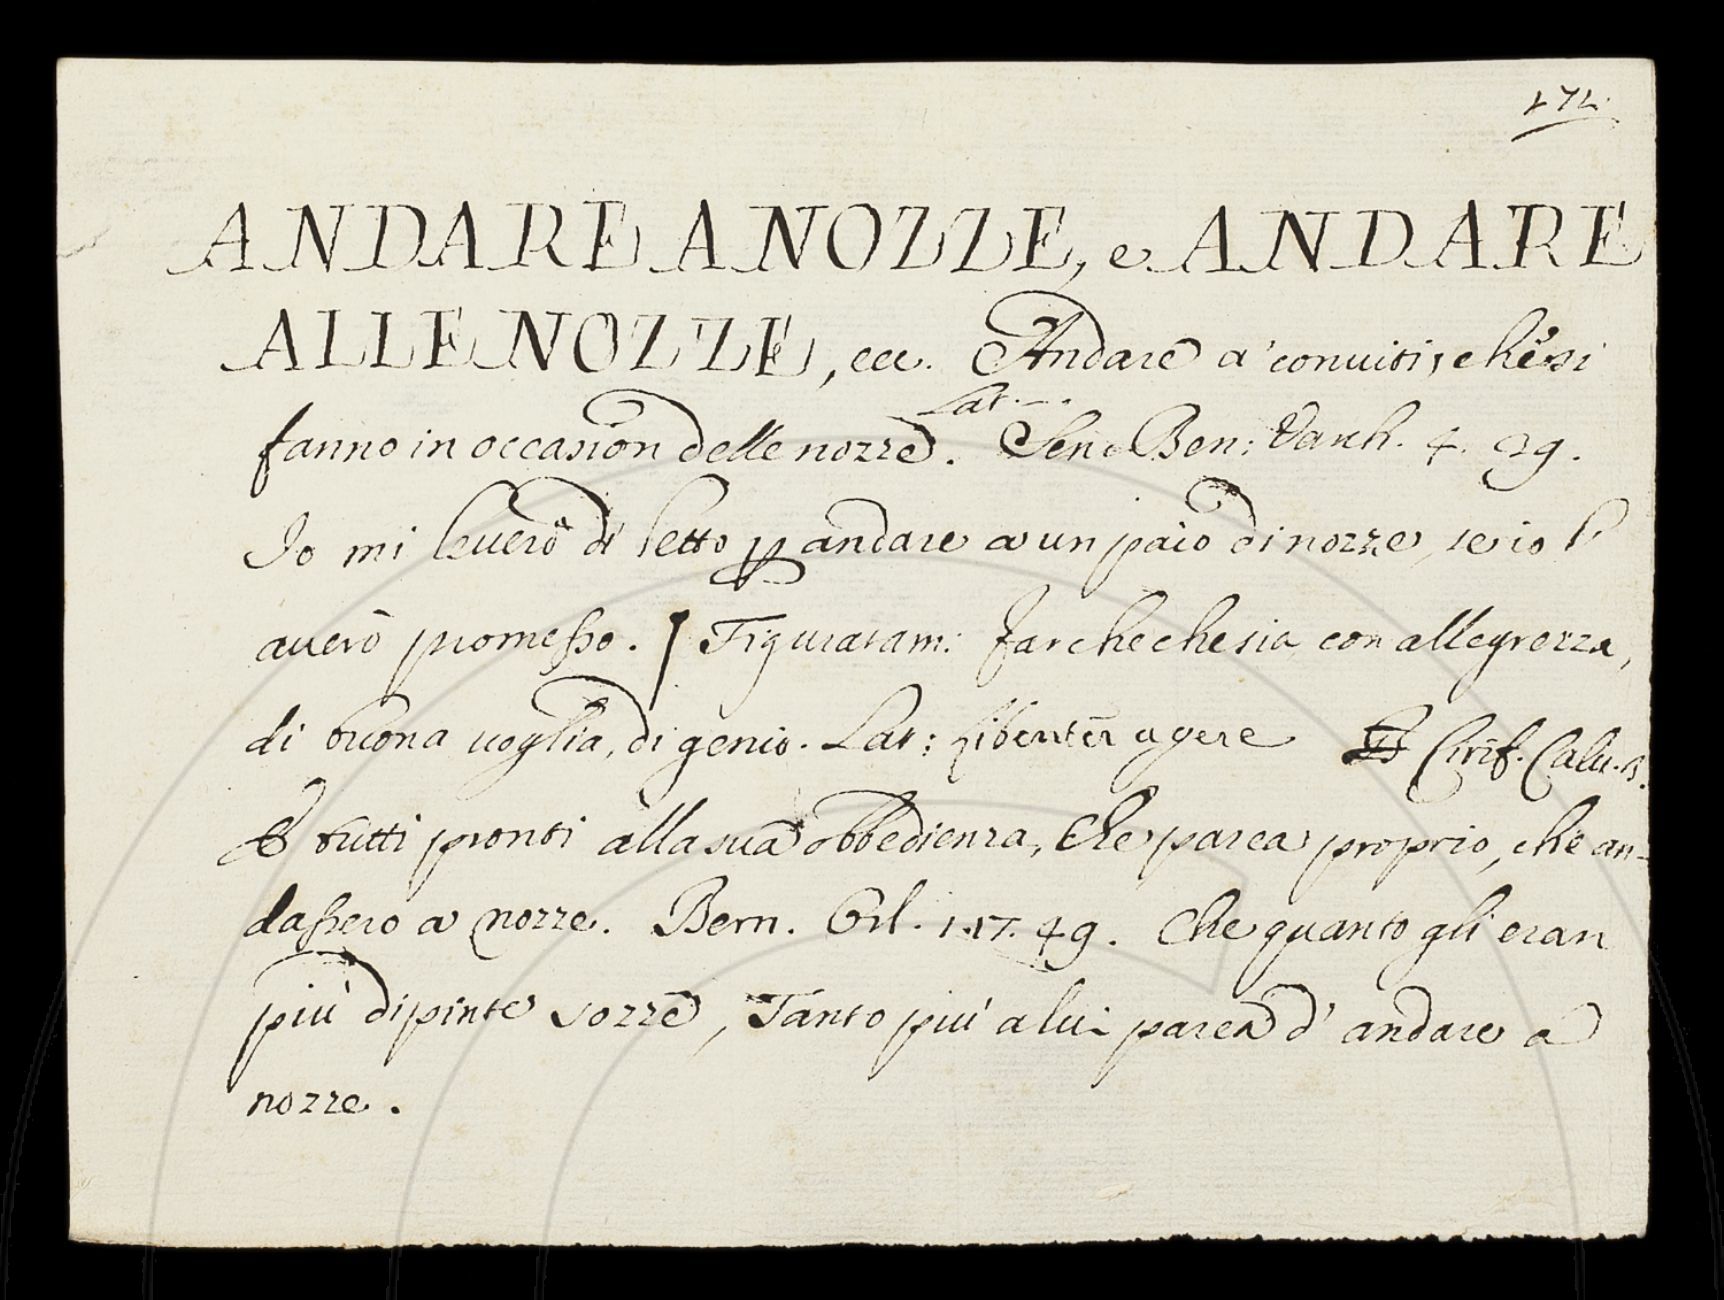 172.
ANDARE A NOZZE, e ANDARE
ALLE NOZZE, ecc. Andare a' conviti, che si
Lat. --.
fanno in occasion delle nozze. Sen: Ben: Varch. 4. 39.
Io mi leverò di letto p andare a un paio di nozze, se io l'
averò promesso. Figuratam: far che che sia con allegrezza,
di buona voglia, di genio. Lat: Libenter agere Cirif. Calv. 3.
E tutti pronti alla sua obbedienza, Che parea proprio, che an-
dassero a nozze. Bern. Orl. 1.17.49. Che quanto gli eran
più dipinte sozze, Tanto più a lui parea d'andare a
nozze.